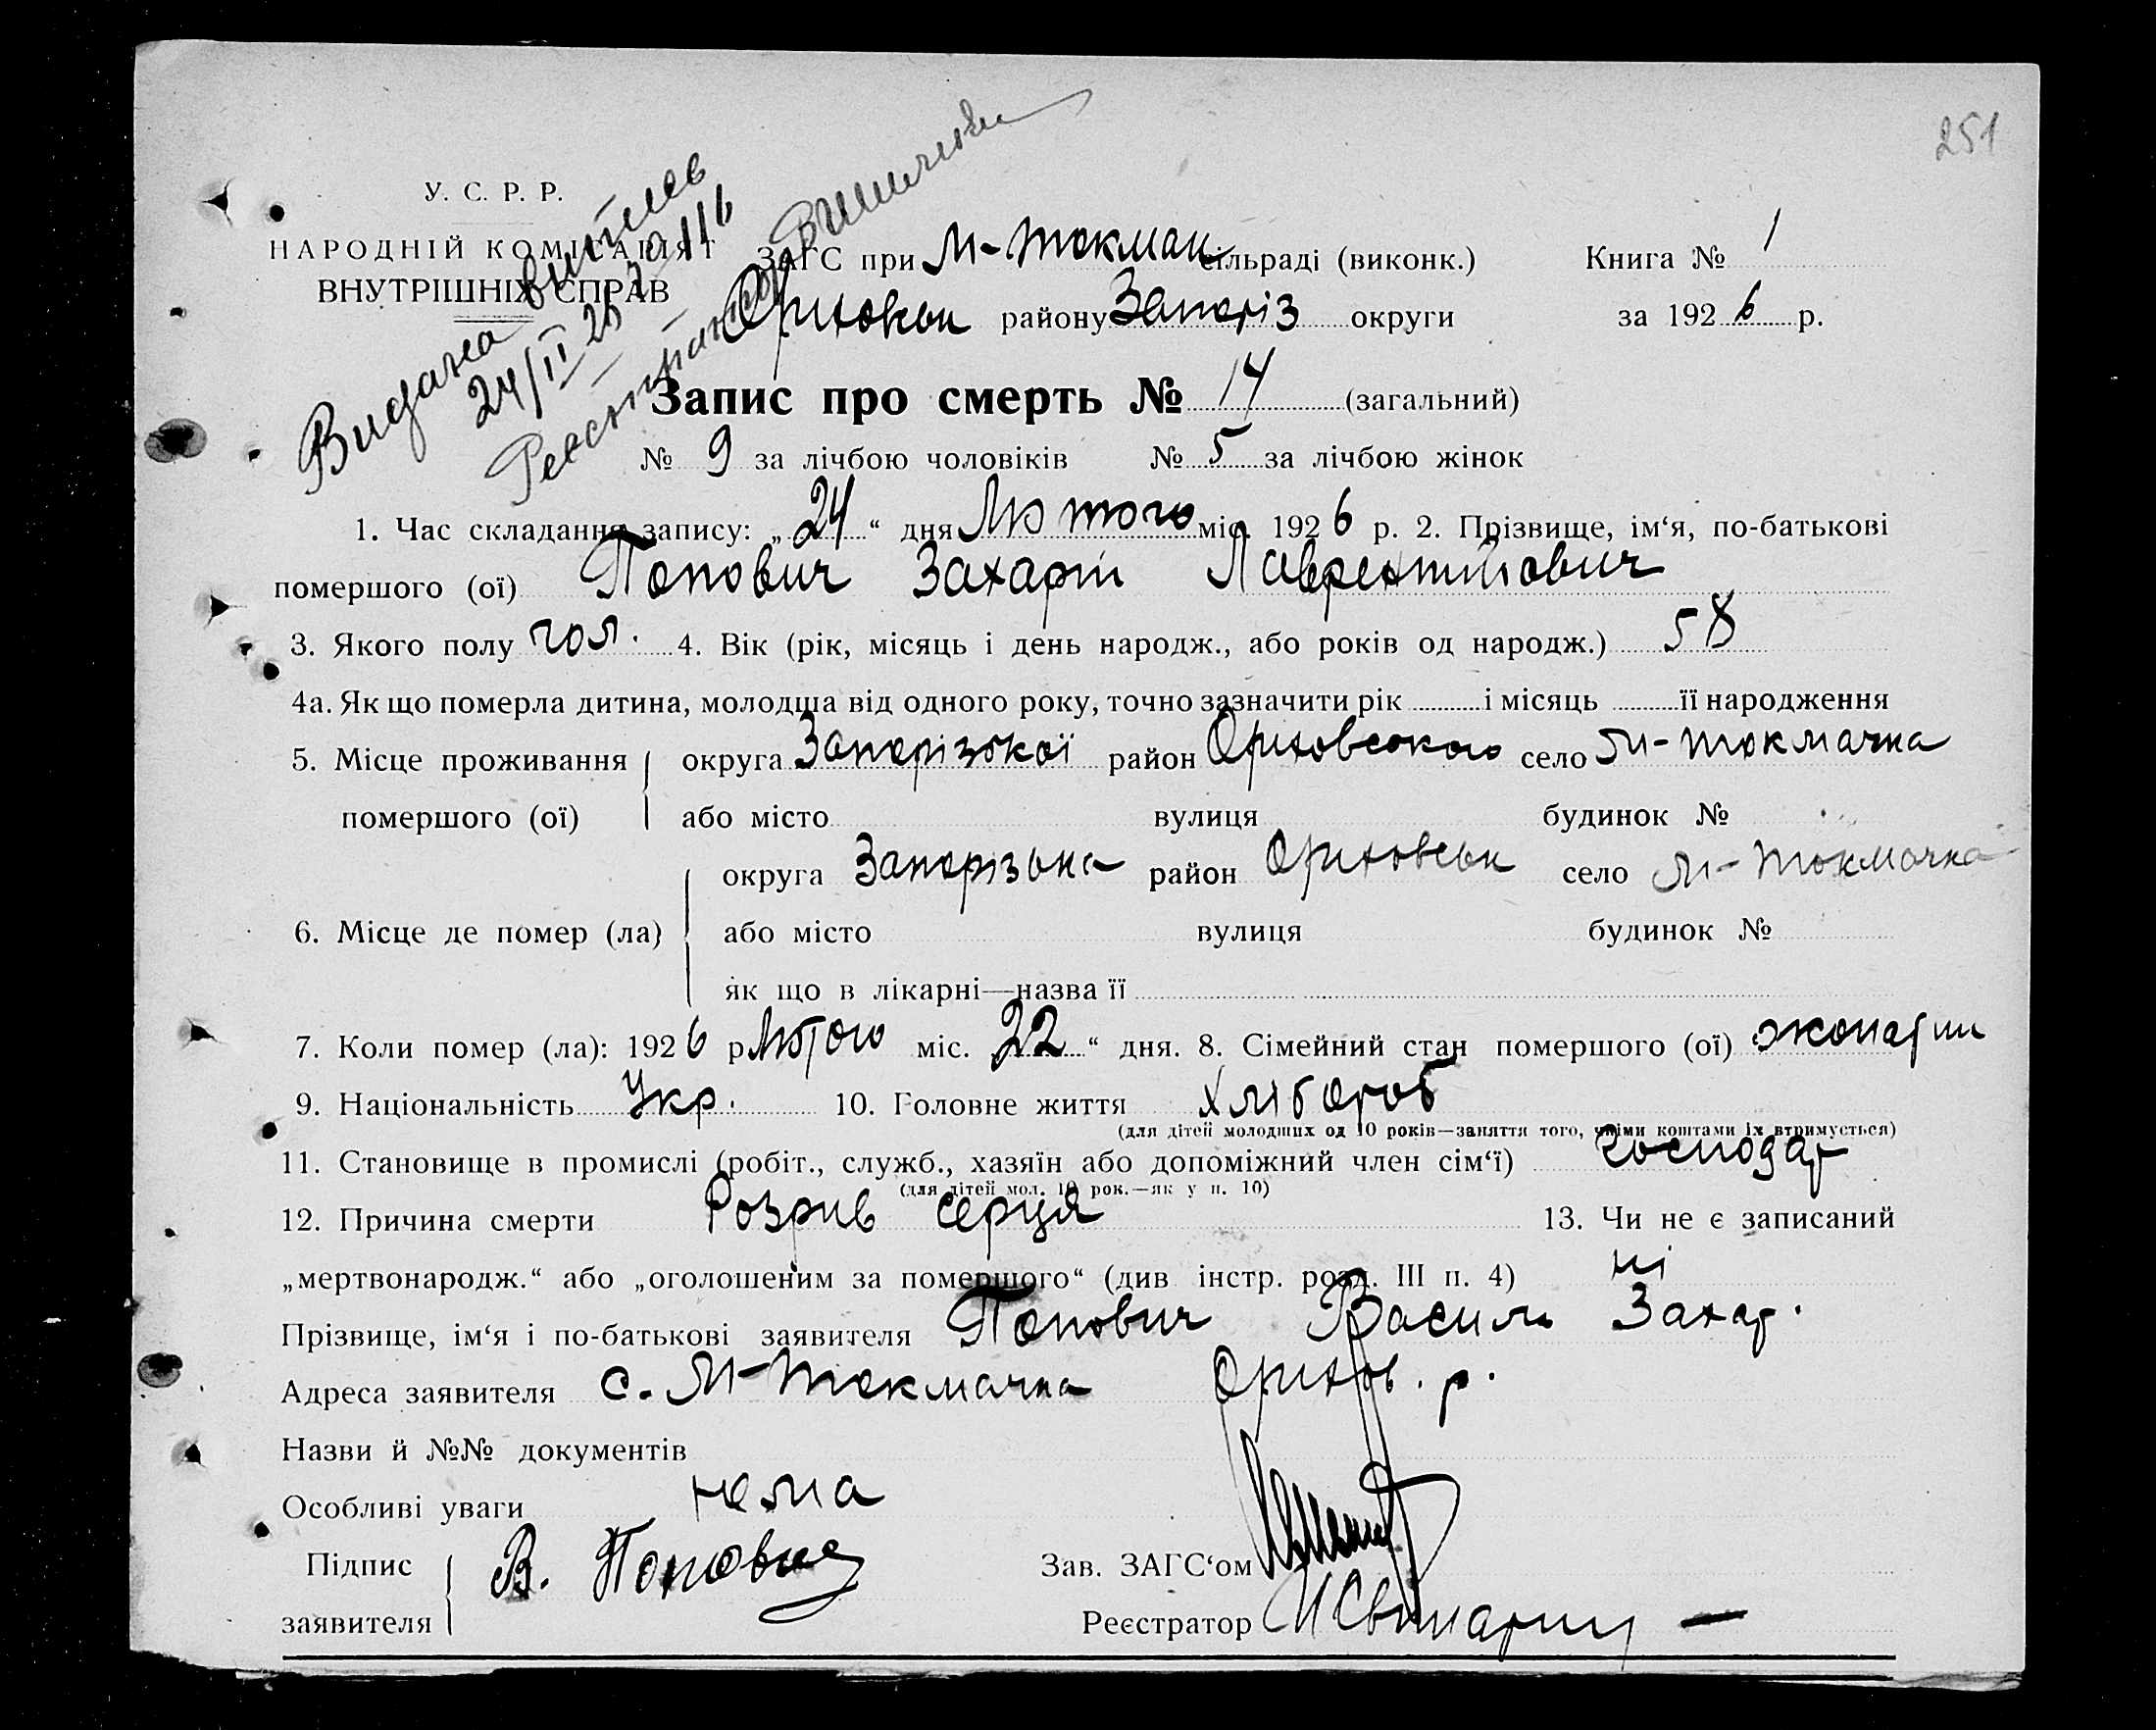 251
У. С. Р. Р.
НАРОДНІЙ КОМІСАРІЯТ
ВНУТРІШНІХ СПРАВ
Видана витяг
24/II 26 р.
ЗАГС при М-Токмач сільраді (виконк.)
Оріховськ району Запоріз округи
Книга № 1
за 1926 р.
Запис про смерть № 14 (загальний)
№ 9 за лічбою чоловіків № 5 за лічбою жінок
1. Час складання запису: „24“ дня Лютого міс. 1926 р. 2. Прізвище, ім‘я, по-батькові
помершого (ої) Попович Захарій Лаврентійович
3. Якого полу чол. 4. Вік (рік, місяць і день народж., або років од народж.) 58
4а. Як що померла дитина, молодша від одного року, точно зазначити рік і місяць її народження
5. Місце проживання округа Запорізської район Оріховського село М-Токмачка
помершого (ої) або місто вулиця будинок №
округа Запорізька район Оріховськ село М-Токмачка
6. Місце де помер (ла) або місто вулиця будинок №
як що в лікарні—назва її
7. Коли помер (ла): 1926 р Лютого міс. 22“ дня. 8. Сімейний стан помершого (ої) жонатий
9. Національність Укр. 10. Головне життя хлібороб
(для дітей молодших од 10 років—заняття того, чиїми коштами їх втримується)
11. Становище в промислі (робіт., служб., хазяїн або допоміжний член сім‘ї) господар
(для дітей мол. 10 рок.—як у п. 10)
12. Причина смерти Розрив серця 13. Чи не є записаний
„мертвонародж.“ або „оголошеним за помершого“ (див інстр. розд. III п. 4) ні
Прізвище, ім‘я і по-батькові заявителя Попович Василь Захар.
Адреса заявителя с. М-Токмачка Оріхов. р.
Назви й №№ документів
Особливі уваги нема
Підпис
заявителя В. Попович
Зав. ЗАГС‘ом
Реєстратор